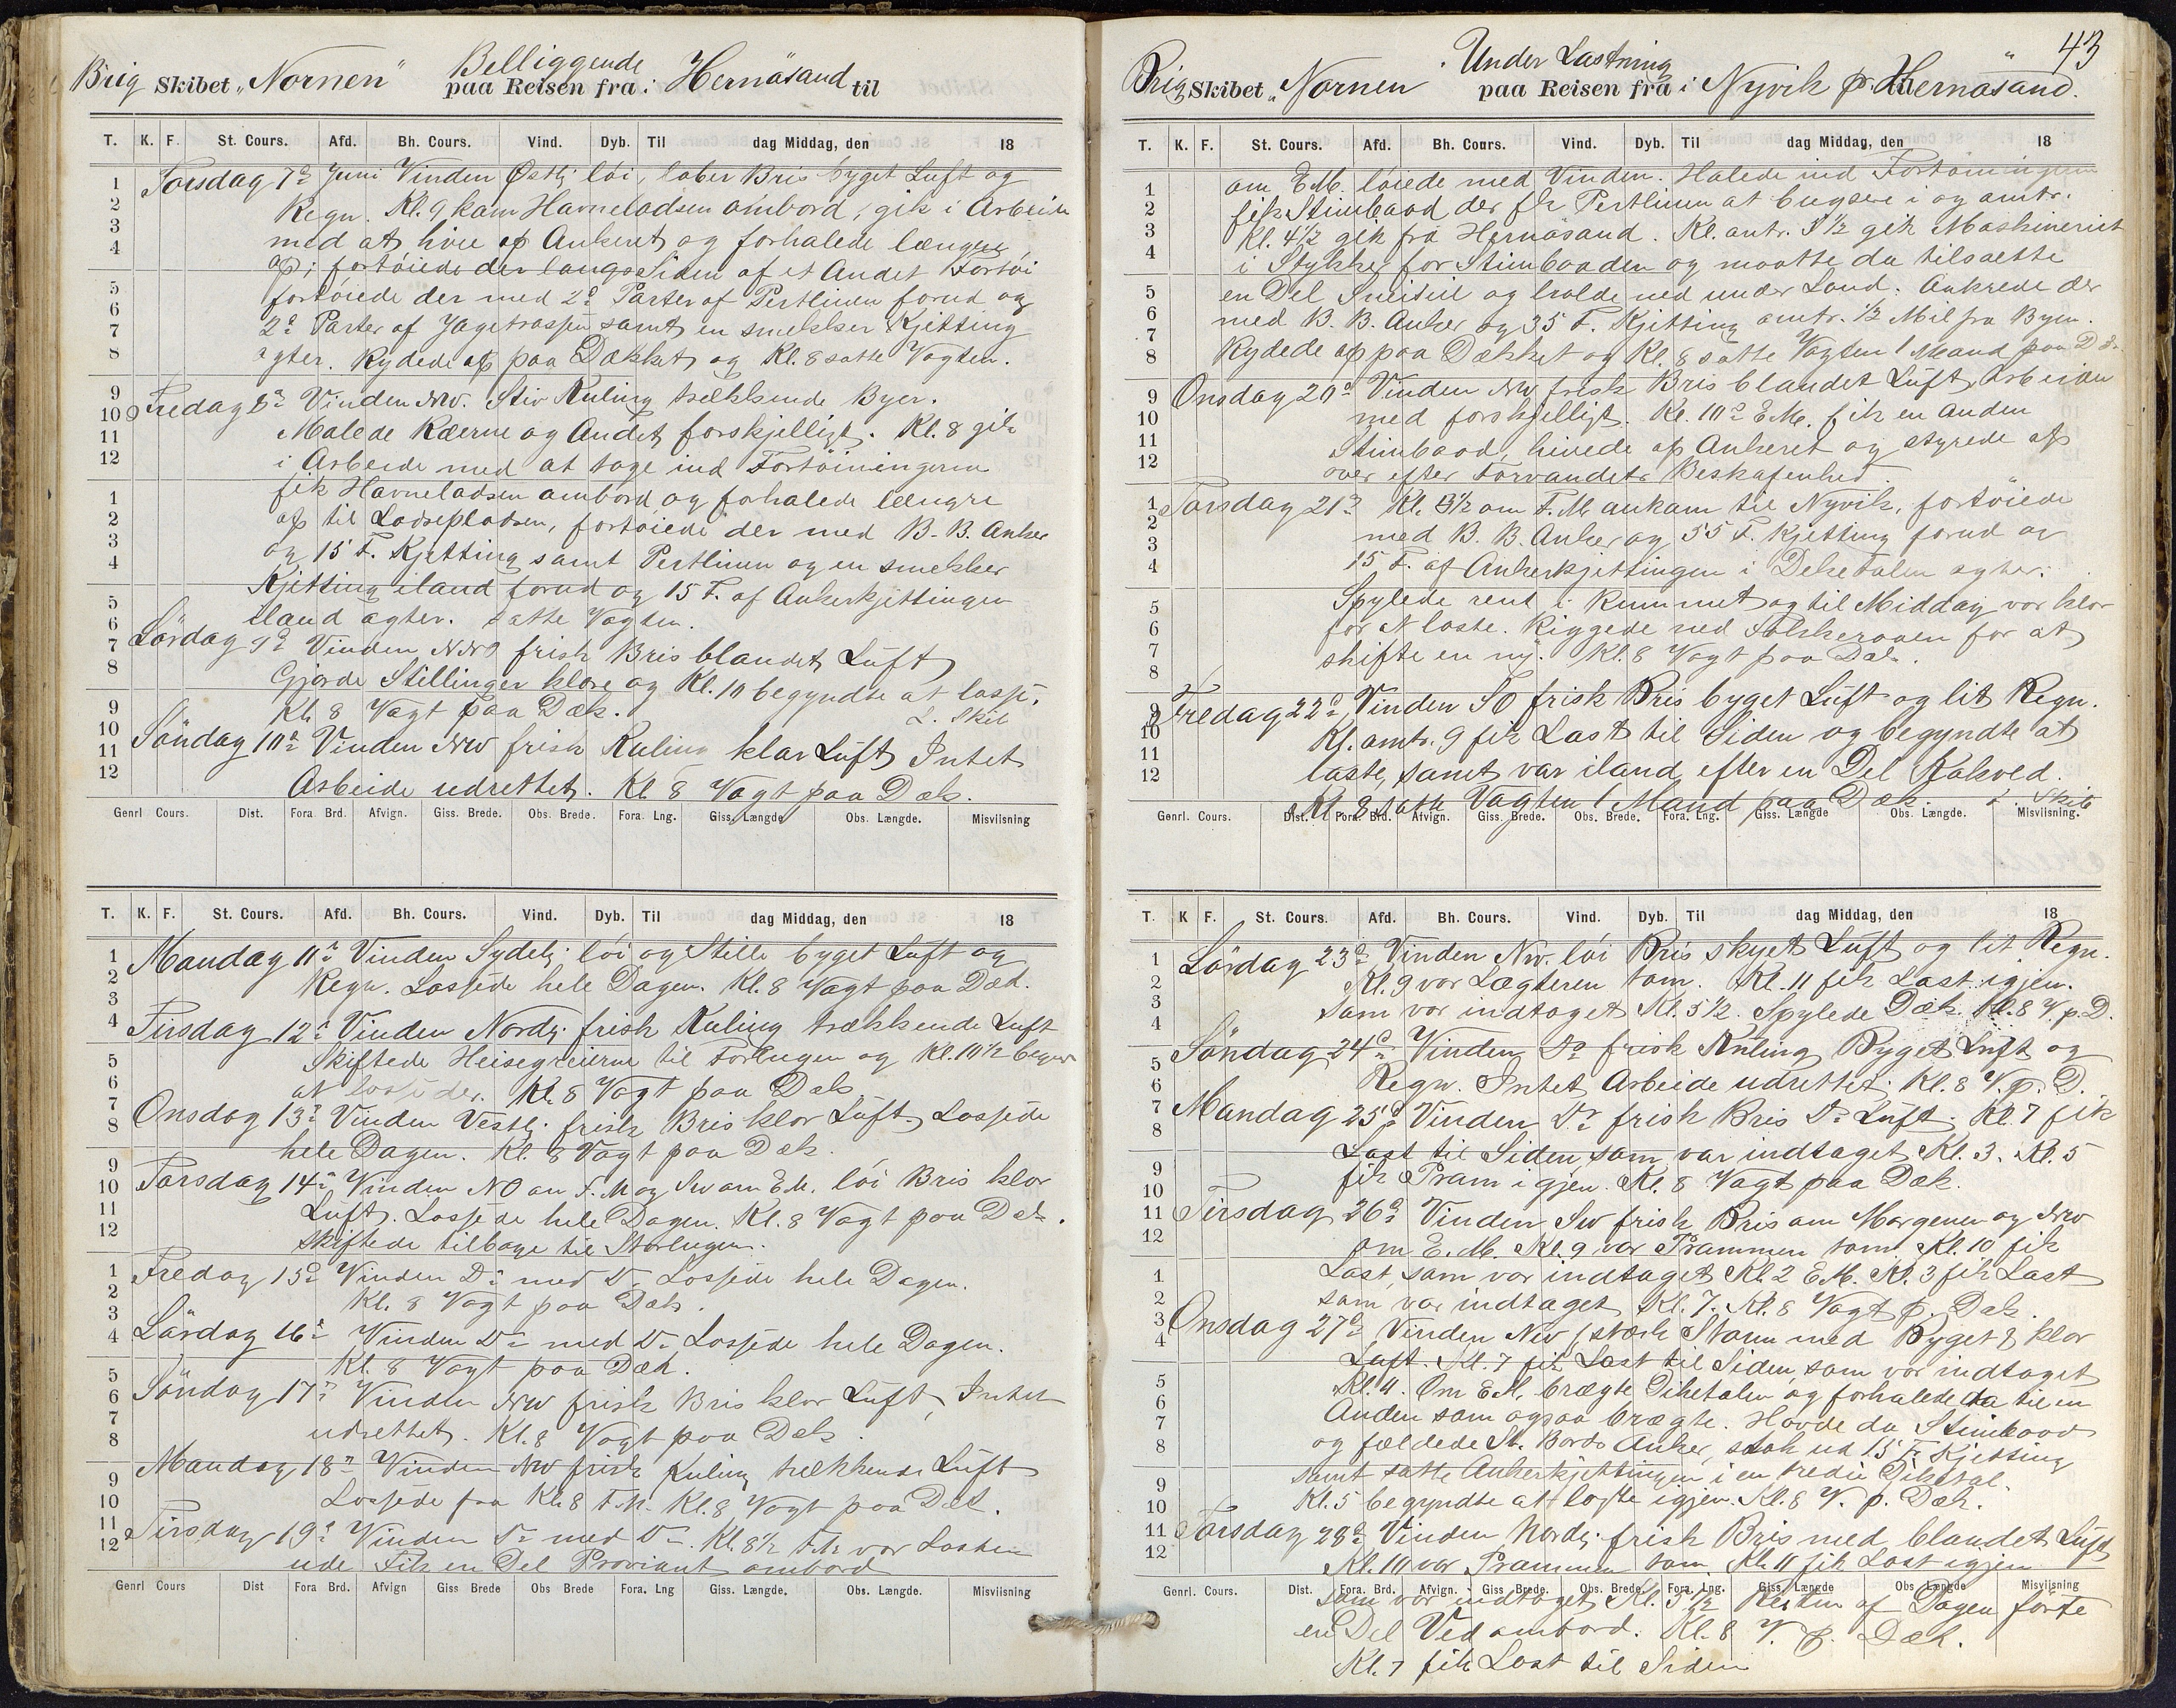 Brig Skibet „Nornen" Belliggende paa Reisen fra i Hernösand til
T. K. F. St. Cours. Afd. Bh. Cours. Vind. Dyb. Til dag Middag, den 18
Torsdag 7de Juni Vinden Østlj. löi, laber Bris byget Luft og
Regn. Kl. 9 kam Havnelodsen ombord, gik i Arbeide
med at hive op Ankeret og forhalede længere
op; fortöiede der langs Siden af et Andet Fartöi
fortöiede der med 2de Parter af Pertlinen forud og
2de Parter af Jagetrossen samt en smekker Kjetting
agter. Rydede op paa Dækket og Kl. 8 satte Vagten.
Fredag 8de Vinden NW. Stiv Kuling trækkende Byer.
Malede Ræerne og Andet forskjelligt. Kl. 8 gik
i Arbeide med at tage ind Fortöiningerne
fik Havnelodsen ombord og forhalede længre
op til Lodsepladsen, fortöiede der med B. B. Anker
og 15 F. Kjetting samt Pertlinen og en smekker
Kjetting iland forud og 15 F. af Ankerkjettingen
iland agter. Satte Vagten.
Lördag 9de Vinden NNW frisk Bris blandet Luft
Gjorde Stillinger klare og Kl. 10 begyndte at losse.
Kl. 8 Vagt paa Dæk. L. Skib
Söndag 10de Vinden NW frisk Kuling klar Luft Intet
Arbeide udrettet. Kl 8 Vagt paa Dæk.
Genrl Cours. Dist. Fora Brd. Afvign. Giss. Brede. Obs. Brede. Fora. Lng. Giss. Længde Obs. Længde. Misviisning
T. K. F. St. Cours. Afd. Bh. Cours. Vind. Dyb. Til dag Middag, den 18
Mandag 11te Vinden Sydelj. löi og Stille byget Luft og
Regn. Lossede hele Dagen. Kl. 8 Vagt paa Dæk.
Tirsdag 12te Vinden Nordlj. frisk Kuling trækkende Luft
Skiftede Heisegreierne til Forlugen og Kl. 10½ begyn
at losse der. Kl. 8 Vagt paa Dæk
Onsdag 13de Vinden Vestlj. frisk Bris klar Luft. Lossede
hele Dagen. Kl. 8 Vagt paa Dæk.
Torsdag 14de Vinden NO om F. M og SW om E.M. löi Bris klar
Luft. Lossede hele Dagen. Kl. 8 Vagt paa Dæk.
Skiftede tilbage til Storlugen.
Fredag 15de Vinden Do med Do Lossede hele Dagen.
Kl. 8 Vagt paa Dæk.
Lördag 16de Vinden Do med Do Lossede hele Dagen.
Kl. 8 Vagt paa Dæk.
Söndag 17de Vinden NW frisk Bris klar Luft, Intet
udrettet. Kl. 8 Vagt paa Dæk.
Mandag 18de Vinden NW frisk Kuling trækkende Luft
Lossede fra Kl. 8 F.M. Kl. 8 Vagt paa Dæk.
Tirsdag 19de Vinden Do med Do. Kl. 8½ F.M. var Lasten
ude Fik en Del Proviant ombord
Genrl Cours Dist Fora Brd. Afvign Giss Brede Obs Brede Fora. Lng Giss. Længde. Obs. Længde. Misviisning
43
Brig Skibet „Nornen Under Lastning paa Reisen fra i Nyvik p. til Hernösand.
T. K. F. St. Cours. Afd. Bh. Cours. Vind. Dyb. Til dag Middag, den 18
om E.M. löiede med Vinden. Halede ind Fortöiningerne
fik Stimbaad der fik Pertlinen at bugsere i og omtr.
Kl. 4½ gik fra Hernösand. Kl. omtr. 5½ gik Maskineriet
i Stykker for Stimbaaden og maatte da tilsætte
en Del Sneiseil og holde ned under Land. Ankrede der
med B. B. Anker og 35 F. Kjetting omtr. ½ Mil fra Byen.
Rydede op paa Dækket og Kl. 8 satte Vagten 1 Mand paa Dæk
Onsdag 20de Vinden NW frisk Bris blandet Luft, Arbeiden
med forskjelligt. Kl. 10 E.M. fik en anden
Stimbaad, hivede op Ankeret og styrede op
over efter Farvandets Beskafenhed.
Torsdag 21de Kl. 3½ om F. M ankom til Nyvik, fortöiede
med B. B. Anker og 55 F. Kjetting forud og
15 F. af Ankerkjettingen i Dekdalen agter.
Spylede rent i Rummet og til Middag var klar
for at laste. Riggede ned Fokkeraaen for at
skifte en ny. Kl. 8 Vagt paa Dæk.
Fredag 22de Vinden SO frisk Bris byget Luft og lit Regn.
Kl. omtr. 9 fik Last til Siden og begyndte at
laste, samt var iland efter en Del Kakved.
Kl. 8 satte Vagten 1 Mand paa Dæk. L. Skib
Genrl. Cours. Dist. Fora. Brd. Afvign. Giss. Brede. Obs. Brede. Fora. Lng. Giss. Længde Obs. Længde. Misviisning.
T. K F. St. Cours. Afd. Bh. Cours. Vind. Dyb. Til dag Middag, den 18
Lördag 23de Vinden NW. löi Bris skyet Luft og lit Regn.
Kl. 9 var Lægteren tom. Kl. 11 fik Last igjen.
som var indtaget Kl. 5½. Spylede Dæk. Kl. 8 V. p. D.
Söndag 24de Vinden Do frisk Kuling Byget Luft og
Regn. Intet Arbeide udrettet. Kl. 8 V. p. D.
Mandag 25de Vinden Do frisk Bris Do Luft. Kl. 7 fik
Last til Siden som var indtaget Kl. 3. Kl. 5
fik Pram igjen. Kl. 8 Vagt paa Dæk.
Tirsdag 26de Vinden SW frisk Bris om Morgenen og NW
om E. M. Kl. 9 var Prammen tom. Kl. 10 fik
Last, som var indtaget Kl. 2 E.M. Kl. 3 fik Last
som var indtaget Kl. 7. Kl. 8 Vagt p. Dæk.
Onsdag 27de Vinden NW stærk Storm med Byget & klar
Luft. Kl. 7 fik Last til Siden som var indtaget
Kl. 4. Om E.M. brægte Dikdalen og forhalede da til en
Anden som ogsaa brægte. Havde da Stimbaad
og fældede St. Bords Anker, stak ud 15 F. Kjetting
samt satte Ankerkjettingen i en tredie Dikdal.
Kl. 5 begyndte at laste igjen. Kl. 8 V. p. Dæk.
Torsdag 28de Vinden Nordlj. frisk Bris med blandet Luft
Kl. 10 var Prammen tom. Kl. 11 fik Last igjen
Genrl. Cours. Dist. Fora. Brd. Afvign. Giss. Brede. Obs. Brede. Fora. Lng. Giss. Længde Obs. Længde Misviisning
som var indtaget Kl. 5½ Resten af Dagen förte
en Del Ved ombord. Kl. 8 V. p. Dæk.
Kl. 7 fik Last til Siden